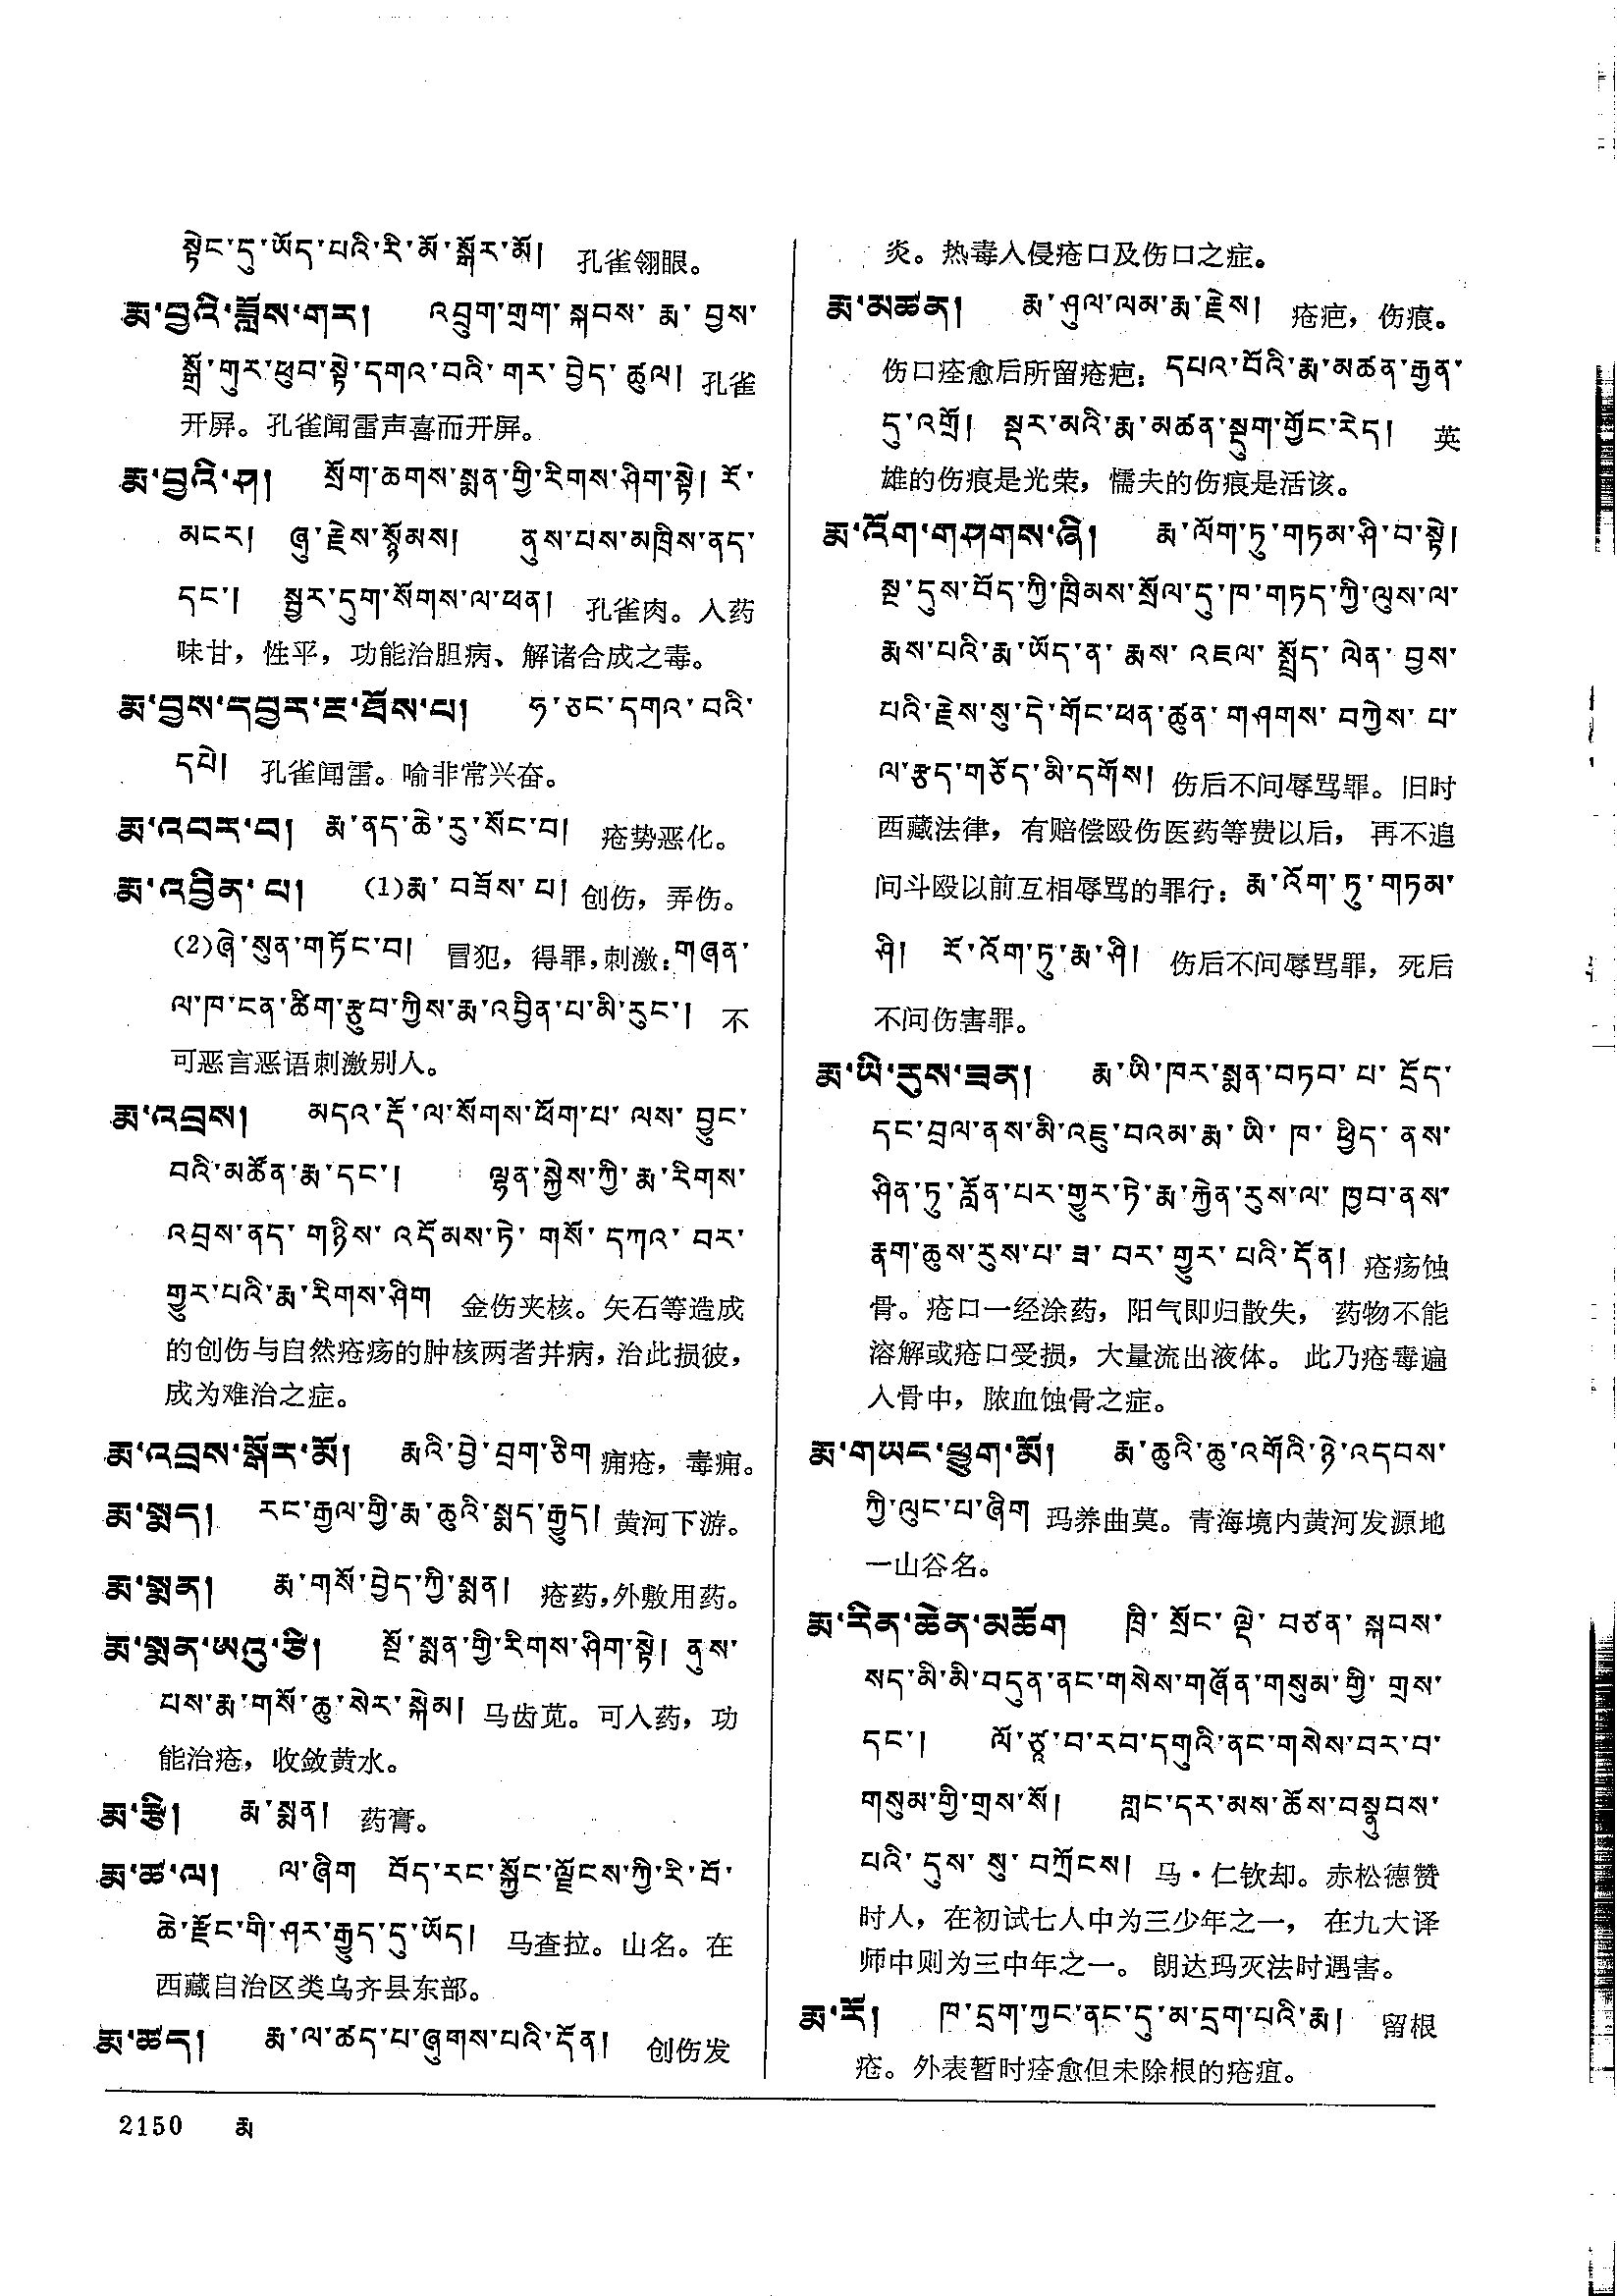 སྟེང་དུ་ཡོད་པའི་རི་མོ་སྒོར་མོ། 孔雀翎眼。
རྨ་བྱའི་ཟློས་གར། འབྲུག་གྲག་སྐབས་རྨ་བྱས་
སྒྲོ་གུར་ཕུབ་སྟེ་དགའ་བའི་གར་བྱེད་ཚུལ། 孔雀
开屏。孔雀闻雷声喜而开屏。
རྨ་བྱའི་ཤ། སྲོག་ཆགས་སྨན་གྱི་རིགས་ཤིག་སྟེ། རོ་
མངར། ཞུ་རྗེས་སྙོམས། ནུས་པས་མཁྲིས་ནད་
དང་། སྦྱར་དུག་སོགས་ལ་ཕན། 孔雀肉。入药
味甘，性平，功能治胆病、解诸合成之毒。
རྨ་བྱས་དབྱར་ང་ཐོས་པ། ཧ་ཅང་དགའ་བའི་
དཔེ། 孔雀闻雷。喻非常兴奋。
རྨ་འབར་བ། རྨ་ནད་ཆེ་རུ་སོང་བ། 疮势恶化。
རྨ་འབྱིན་པ། (1)རྨ་བཟོས་པ། 创伤，弄伤。
(2)ཞེ་སུན་གཏོང་བ། 冒犯，得罪，刺激：གཞན་
ལ་ཁ་ངན་ཚིག་རྩུབ་ཀྱིས་རྨ་འབྱིན་པ་མི་རུང་། 不
可恶言恶语刺激别人。
རྨ་འབྲས། མདའ་རྡོ་ལ་སོགས་ཕོག་པ་ལས་བྱུང་
བའི་མཚོན་རྨ་དང་། ལྷན་སྐྱེས་ཀྱི་རྨ་རིགས་
འབྲས་ནད་གཉིས་འདོམས་ཏེ་གསོ་དཀའ་བར་
གྱུར་པའི་རྨ་རིགས་ཤིག 金伤夹核。矢石等造成
的创伤与自然疮疡的肿核两者并病，治此损彼，
成为难治之症。
རྨ་འབྲས་སྒོར་མོ། རྨའི་བྱེ་བྲག་ཅིག 痈疮，毒痈。
རྨ་སྨད། རང་རྒྱལ་གྱི་རྨ་ཆུའི་སྨད་རྒྱུད། 黄河下游。
རྨ་སྨན། རྨ་གསོ་བྱེད་ཀྱི་སྨན། 疮药，外敷用药。
རྨ་སྨན་ཨའུ་ཙི། སྔོ་སྨན་གྱི་རིགས་ཤིག་སྟེ། ནུས་
པས་རྨ་གསོ་ཆུ་སེར་སྐེམ། 马齿苋。可入药，功
能治疮，收敛黄水。
རྨ་རྩི། རྨ་སྨན། 药膏。
རྨ་ཚ་ལ། ལ་ཞིག བོད་རང་སྐྱོང་ལྗོངས་ཀྱི་རི་བོ་
ཆེ་རྫོང་གི་ཤར་རྒྱུད་དུ་ཡོད། 马查拉。山名。在
西藏自治区类乌齐县东部。
རྨ་ཚད། རྨ་ལ་ཚད་པ་ཞུགས་པའི་དོན། 创伤发
炎。热毒入侵疮口及伤口之症。
རྨ་མཚན། རྨ་ཤུལ་ལམ་རྨ་རྗེས། 疮疤，伤痕。
伤口痊愈后所留疮疤：དཔའ་བོའི་རྨ་མཚན་རྒྱན་
དུ་འགྲོ། སྡར་མའི་རྨ་མཚན་སྡུག་གྱོང་རེད། 英
雄的伤痕是光荣，懦夫的伤痕是活该。
རྨ་འོག་གཤགས་ཞི། རྨ་ལོག་ཏུ་གཏམ་ཤི་བ་སྟེ།
སྔ་དུས་བོད་ཀྱི་ཁྲིམས་སྲོལ་དུ་ཁ་གཏད་ཀྱི་ལུས་ལ་
རྨས་པའི་རྨ་ཡོད་ན་རྨས་འཇལ་སྤྲོད་ལེན་བྱས་
པའི་རྗེས་སུ་དེ་གོང་ཕན་ཚུན་གཤགས་བཀྱེས་པ་
ལ་རྩད་གཅོད་མི་དགོས། 伤后不问辱骂罪。旧时
西藏法律，有赔偿殴伤医药等费以后，再不追
问斗殴以前互相辱骂的罪行：རྨ་འོག་ཏུ་གཏམ་
ཤི། རོ་འོག་ཏུ་རྨ་ཤི། 伤后不问辱骂罪，死后
不问伤害罪。
རྨ་ཡི་རུས་ཟན། རྨ་ཡི་ཁར་སྨན་བཏབ་པ་དྲོད་
དང་བྲལ་ནས་མི་འཇུ་བའམ་རྨ་ཡི་ཁ་ཕྱིད་ནས་
ཤིན་ཏུ་རློན་པར་གྱུར་ཏེ་རྨ་རྐྱེན་རུས་ལ་ཁྱབ་ནས་
རྣག་ཆུས་རུས་པ་ཟ་བར་གྱུར་པའི་དོན། 疮疡蚀
骨。疮口一经涂药，阳气即归散失，药物不能
溶解或疮口受损，大量流出液体。此乃疮毒遍
入骨中，脓血蚀骨之症。
རྨ་གཡང་ཕྱུག་མོ། རྨ་ཆུའི་ཆུ་འགོའི་ཉེ་འདབས་
ཀྱི་ལུང་པ་ཞིག 玛养曲莫。青海境内黄河发源地
一山谷名。
རྨ་རིན་ཆེན་མཆོག ཁྲི་སྲོང་ལྡེ་བཙན་སྐབས་
སད་མི་མི་བདུན་ནང་གསེས་གཞོན་གསུམ་གྱི་གྲས་
དང་། ལོ་ཙཱ་བ་རབ་དགུའི་ནང་གསེས་བར་བ་
གསུམ་གྱི་གྲས་སོ། གླང་དར་མས་ཆོས་བསྣུབས་
པའི་དུས་སུ་བཀྲོངས། 马·仁钦却。赤松德赞
时人，在初试七人中为三少年之一，在九大译
师中则为三中年之一。朗达玛灭法时遇害。
རྨ་རོ། ཁ་དྲག་ཀྱང་ནང་དུ་མ་དྲག་པའི་རྨ། 留根
疮。外表暂时痊愈但未除根的疮疽。
2150 རྨ